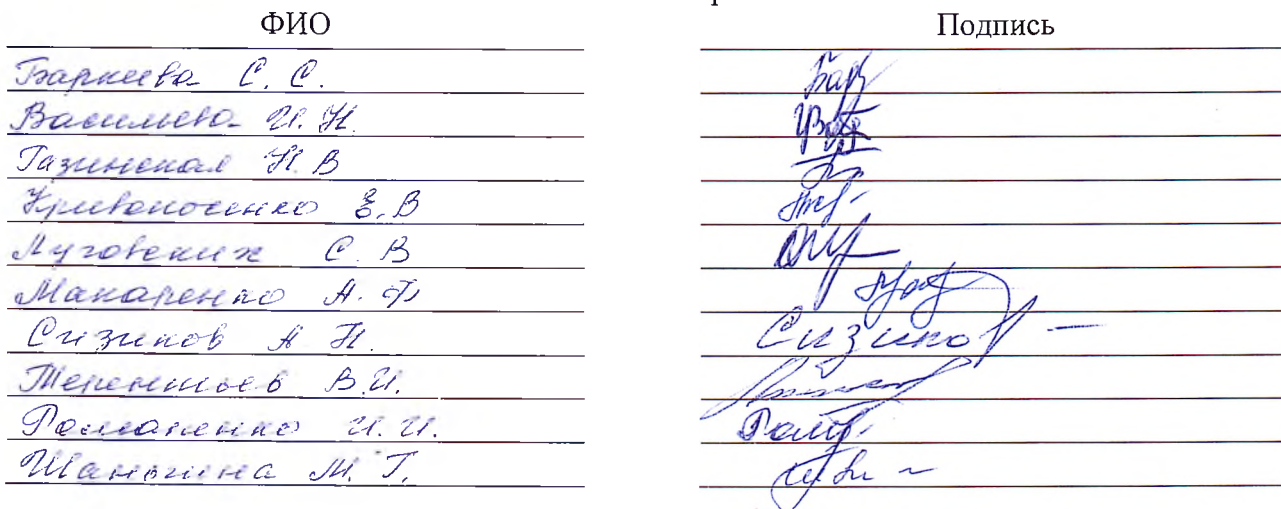 ФИО Подпись
Баркеева С. С.
Васильева И. Н.
Газинская Н. В
Кривоносенко Е. В
Луговских С. В
Макаренко А. Ф
Сизиков А Н. Сизиков
Терентьев В. И.
Романенко И. И.
Шаньгина М. Г.